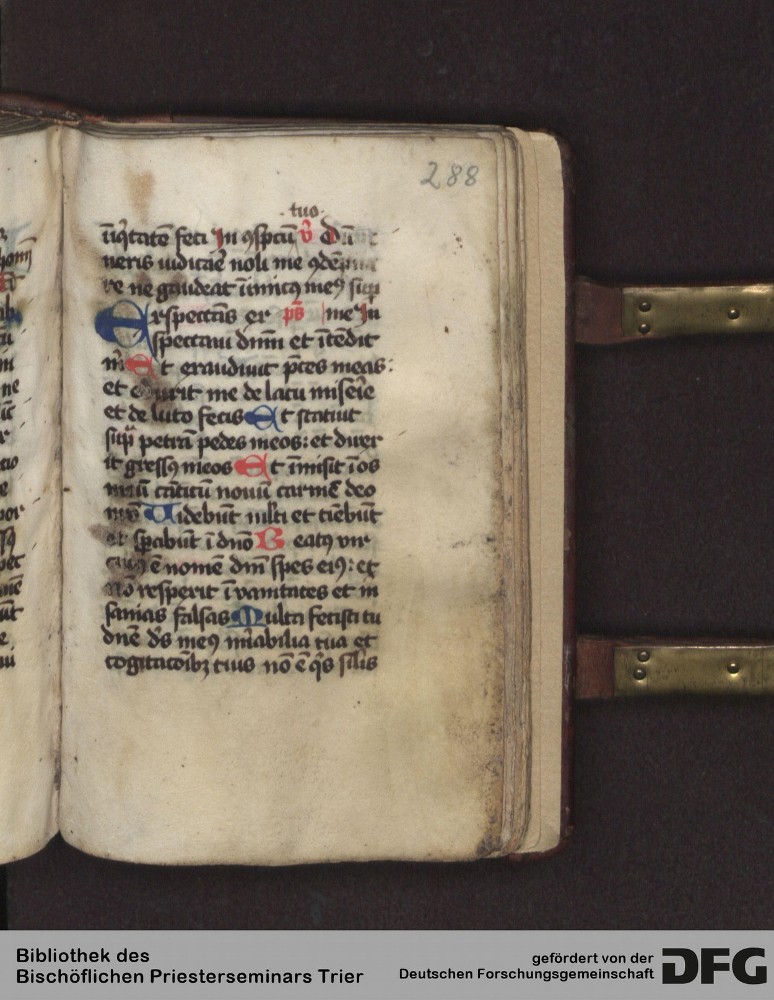 288
tuo
īiq̄tatē feci In ɔspc̄tū v̄ dū
neris iudicarē noli me ɔdēpna
re ne gaudeat īimicꝰ meꝰ sup̄
Exspectās ex ps̄ me In
spectaui dn̄m et ītēdit
m̄ Et exaudiuit p̄ces meas:
et eduxit me de lacu miserīe
et de luto fecis Et statuit
sup̄ petrā pedes meos: et direx
it gressꝰ meos Et īmisit ī os
meū cāticū nouū carmē deo
nr̄o Uidebūt ml̄ti et timēbūt
et sp̄abūt ī dn̄o Beatꝰ vir
cuiꝰ ē nomē dn̄i spes eiꝰ: et
nō respexit ī vanitates et in
sanias falsas Multa fecisti tu
dn̄e ds̄ meꝰ mirabilia tua et
cogitacōibꝫ tuis nō ē q̄s sil̄is
Bibliothek des
Bischöflichen Priesterseminars Trier
gefördert von der
Deutschen Forschungsgemeinschaft
DFG